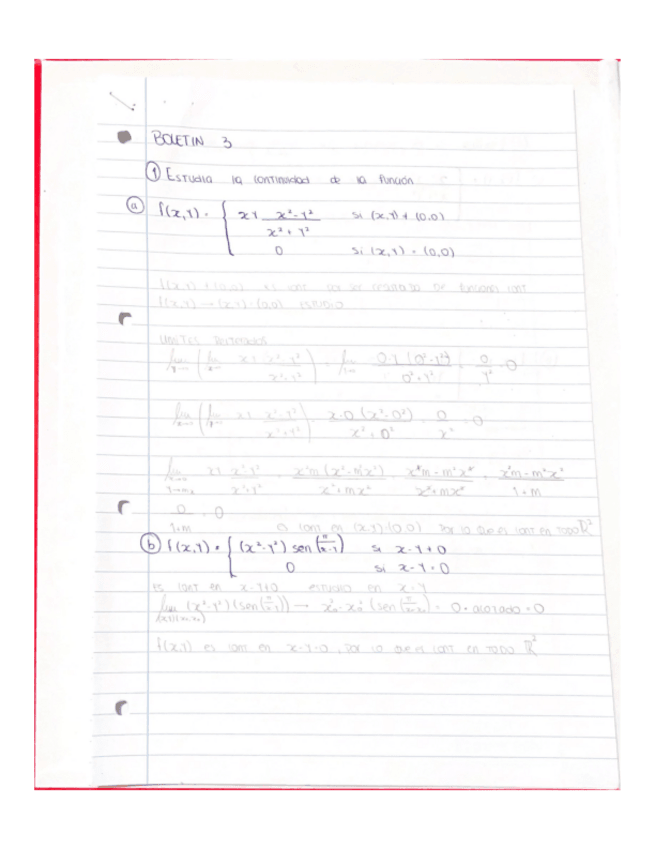 BOLETIN 3
① Estudia la continuidad de la función
ⓐ f(x,y) = { xy (x²-y²)/(x²+y²) si (x,y) ≠ (0,0)
0 si (x,y) = (0,0)
f(x,y) ≠ (0,0) es cont por ser de funciones cont
f(x,y) → (x,y)=(0,0) estudio
Limites reiterados
lim y→0 (lim x→0 xy (x²-y²)/(x²+y²)) = lim y→0 0·y (0²-y²)/(0²+y²) = 0/y² = 0
lim x→0 (lim y→0 xy (x²-y²)/(x²+y²)) = x·0 (x²-0²)/(x²+0²) = 0/x² = 0
lim xy (x²-y²)/(x²+y²) = x²m (x²-m²x²)/(x²+mx²) = (x⁴m - m³x⁴)/(x²+mx²) = (x²m - m³x²)/(1+m)
0/(1+m) = 0
es cont en (x,y)=(0,0) por lo que es cont en todo ℝ²
ⓑ f(x,y) = { (x²-y²) sen(π/(x-y)) si x-y≠0
0 si x-y=0
es cont en x-y≠0 estudio en x=y
lim (x²-y²)(sen(π/(x-y))) → x₀²-x₀² (sen(π/(x₀-x₀))) = 0 · acotado = 0
f(x,y) es cont en x-y=0, por lo que es cont en todo ℝ²